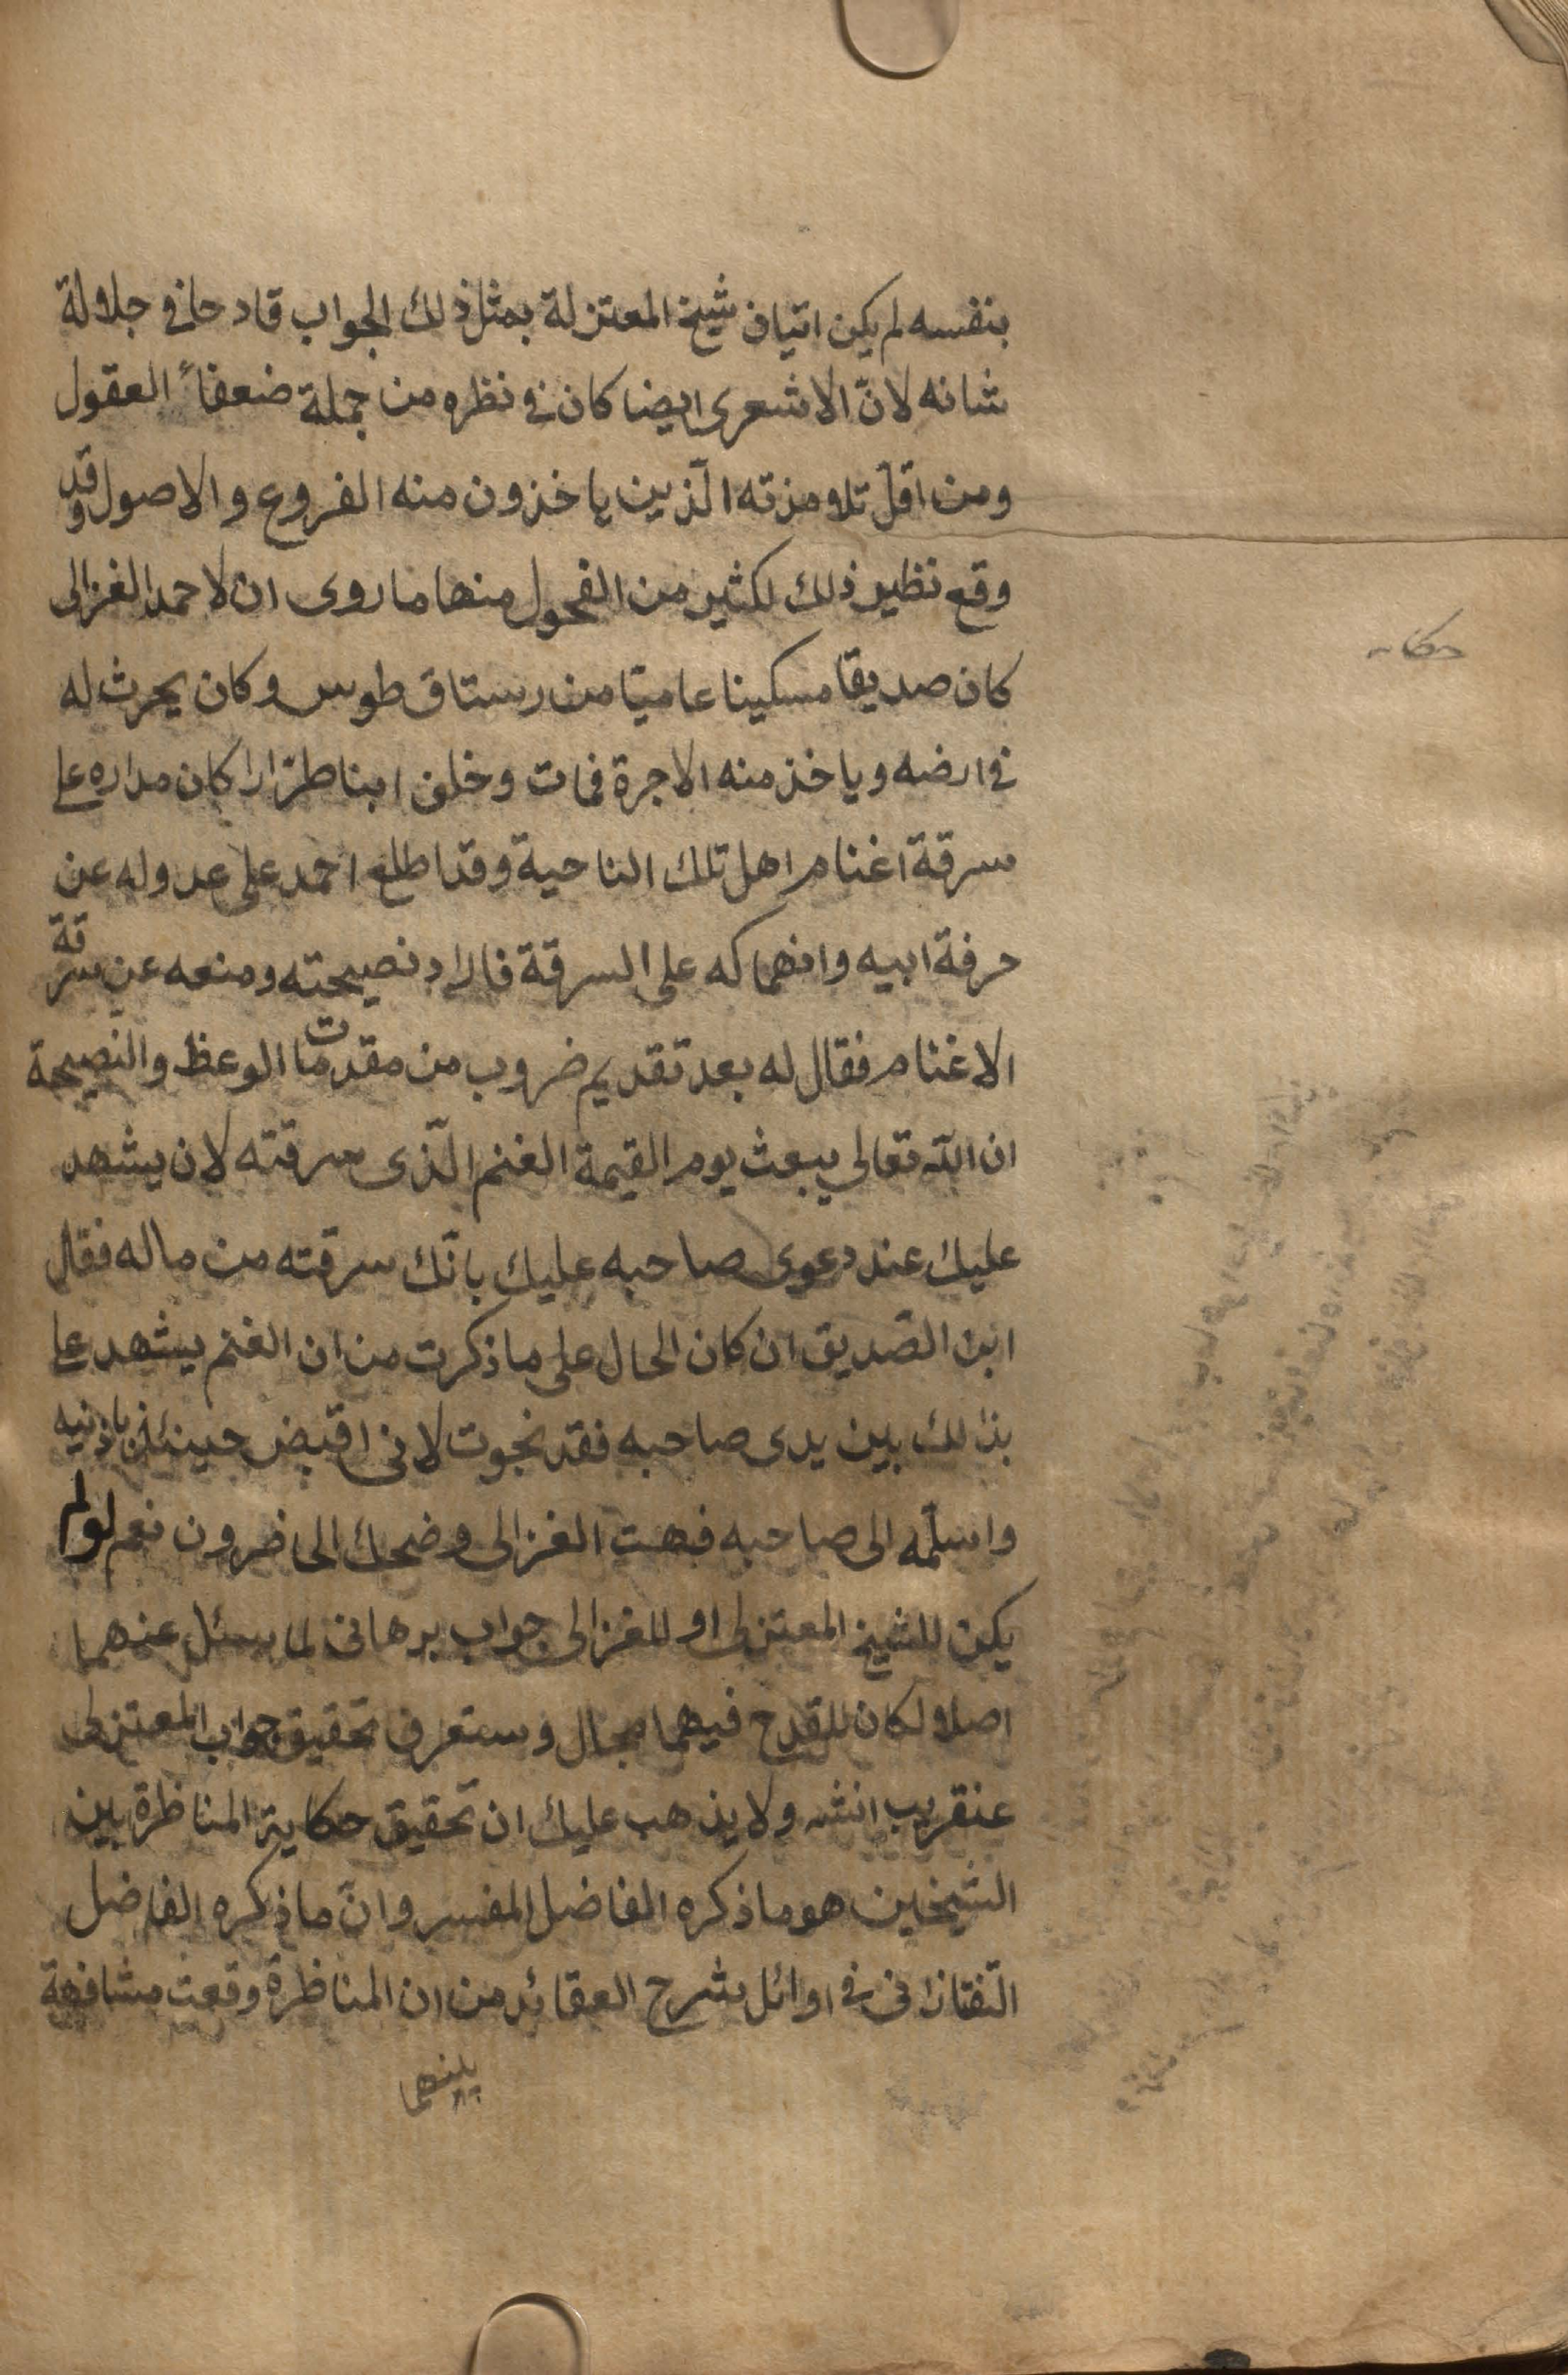 بنفسه لم يكن اتيان شيخ المعتزلة بمثل ذلك الجواب قادحا في جلالة
شانه لانّ الاشعرى ايضا كان في نظره من جملة ضعفاء العقول
ومن اقلّ تلامذته الّذين ياخذون منه الفروع والاصول وقد
وقع نظير ذلك لكثير من الفحول منها ما روى ان لاحمد الغزالى
حكاية
كان صديقا مسكينا عاميّا من رستاق طوس وكان يحرث له
في ارضه وياخذ منه الاجرة فمات وخلف ابنا طرّارا كان مداره على
سرقة اغنام اهل تلك الناحية وقد اطلع احمد على عدوله عن
حرفة ابيه وانهماكه على السرقة فاراد نصيحته ومنعه عن سرقة
الاغنام فقال له بعد تقديم ضروب من مقدمات الوعظ والنصيحة
ان اللّه تعالى يبعث يوم القيمة الغنم الّذى سرقته لان يشهد
عليك عند دعوى صاحبه عليك بانّك سرقته من ماله فقال
ابن الصّديق ان كان الحال على ما ذكرت من ان الغنم يشهد على
بذلك بين يدى صاحبه فقد نجوت لانى اقبض حينئذ باذنيه
واسلّمه الى صاحبه فبهت الغزالى وضحك الحاضرون نعم لو لم
يكن للشيخ المعتزلى او للغزالى جواب برهانى لما سئل عنهما
اصلا لكان للقدح فيهما مجال وستعرف تحقيق جواب المعتزلى
عنقريب انشه ولا يذهب عليك ان تحقيق حكاية المناظرة بين
الشيخين هو ما ذكره الفاضل المفسر وانّ ما ذكره الفاضل
التّفتازانى في اوائل شرح العقائد من ان المناظرة وقعت مشافهة
بينهما